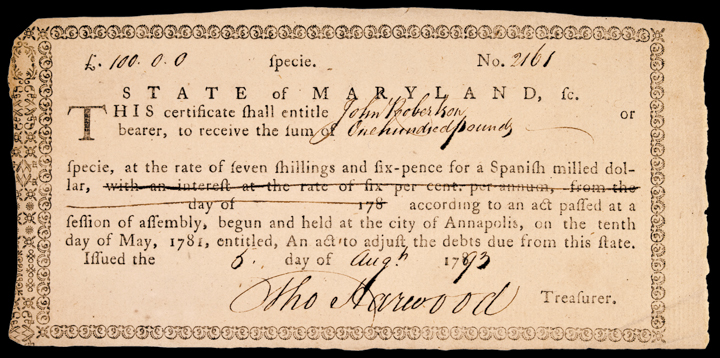 £. 100. 0. 0 ſpecie. No. 2161
STATE of MARYLAND, ſc.
THIS certificate ſhall entitle John Roberſon or
bearer, to receive the ſum of One hundred pounds
ſpecie, at the rate of ſeven ſhillings and ſix-pence for a Spaniſh milled dol-
lar, with an intereſt at the rate of ſix per cent. per annum, from the
day of 178 according to an act paſſed at a
ſeſſion of aſſembly, begun and held at the city of Annapolis, on the tenth
day of May, 1781, entitled, An act to adjuſt the debts due from this ſtate.
Iſſued the 5. day of Augt 1793
Tho Harwood Treaſurer.